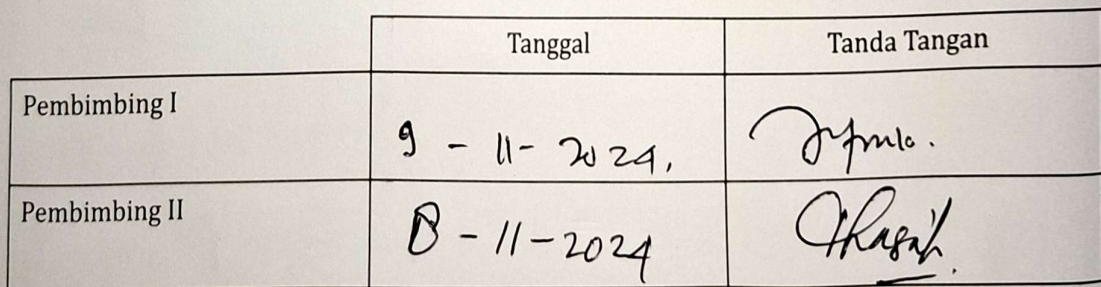 Tanggal Tanda Tangan
Pembimbing I
9 - 11 - 2024,
Pembimbing II
8 - 11 - 2024